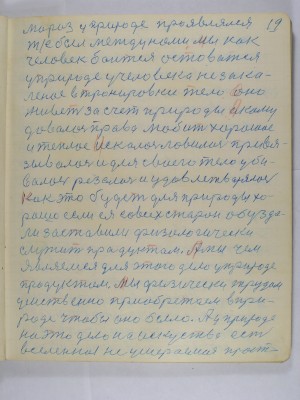 мороз у природе проявлялся 19
Же был между ними мы как
человек боится остаться
у природе у человека не зака-
леное в тренировки тело оно
живет за счет природы а кому
давалося права любит хорошое
и теплое искалося ловилося привя-
зывалося и для своего тело уби-
валося резалося и удовлетворялося
как это будет для природы хо-
рошо если ея со всех сторон обузда-
ли заставили физологически
служить продуктам. А мы чем
являемся для этого дело у природе
продуктом. Мы физически трудом
умственно приобретаем в при-
роде чтобы оно было. А в природе
на это дело на искуства есть
вселенныи не умераимая прост-